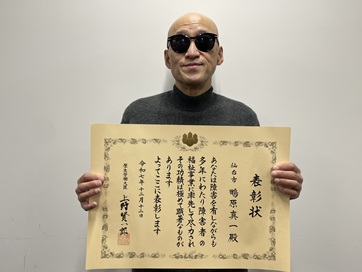 表彰状
仙台市 鴫原真一殿
あなたは障害を有しながらも
多年にわたり障害者の
福祉事業に率先して尽力され
その功績は極めて顕著なものが
あります
よってここに表彰します
令和七年十二月十二日
厚生労働大臣 上野賢一郎